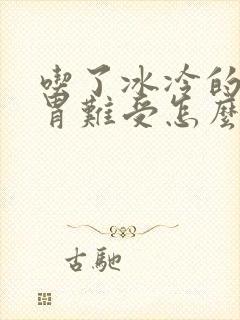 喫了冰冷的
胃難受怎麼
古馳